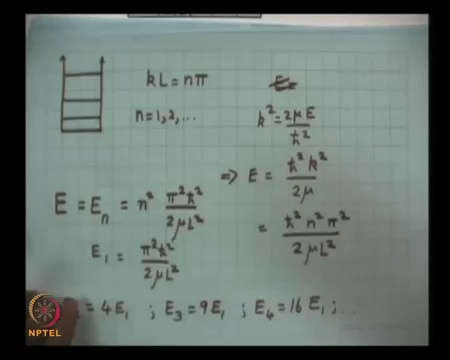 kL = nπ
n = 1, 2, ...
E =
k² = 2μE / ħ²
⇒ E = ħ²k² / 2μ
= ħ² n² π² / 2μL²
E = Eₙ = n² π²ħ² / 2μL²
E₁ = π²ħ² / 2μL²
= 4E₁ ; E₃ = 9E₁ ; E₄ = 16 E₁ ; ..
NPTEL